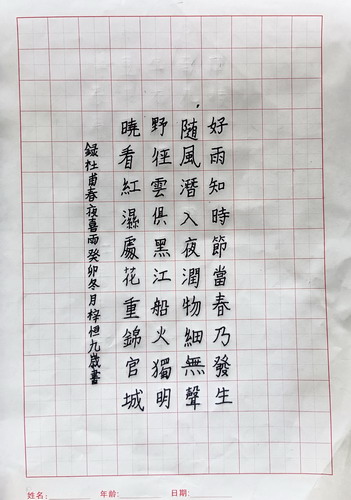 好雨知時節當春乃發生
随風潛入夜潤物細無聲
野徑雲俱黑江船火獨明
曉看紅濕處花重錦官城
錄杜甫春夜喜雨癸卯冬月梓恒九歲書
姓名: 年齡: 日期: